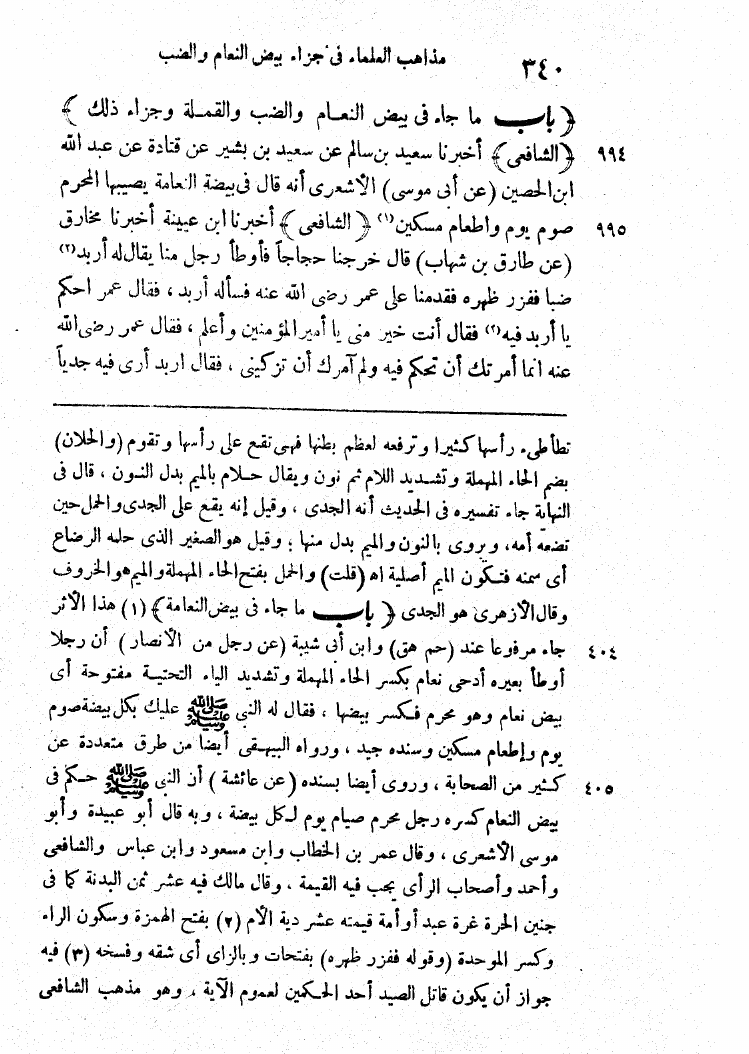 ٣٤٠ مذاهب العلماء فى جزاء بيض النعام والضب
﴿ باب ما جاء فى بيض النعام والضب والقملة وجزاء ذلك ﴾
٩٩٤ ﴿ الشافعى ﴾ أخبرنا سعيد بن سالم عن سعيد بن بشير عن قتادة عن عبد الله
ابن الحصين (عن أبى موسى) الأشعرى أنه قال فى بيضة النعامة يصيبها المحرم
٩٩٥ صوم يوم واطعام مسكين (١) ﴿ الشافعى ﴾ أخبرنا ابن عيينة أخبرنا مخارق
(عن طارق بن شهاب) قال خرجنا حجاجاً فأوطأ رجل منا يقال له أربد (٢)
ضبا ففزر ظهره فقدمنا على عمر رضى الله عنه فسأله أربد ، فقال عمر احكم
يا أربد فيه (٣) فقال أنت خير منى يا أمير المؤمنين وأعلم ، فقال عمر رضى الله
عنه انما أمرتك أن تحكم فيه ولم آمرك أن تزكينى ، فقال اربد أرى فيه جدياً
تطأطىء رأسها كثيرا وترفعه لعظم بطنها فهى تقع على رأسها وتقوم (والحلان)
بضم الحاء المهملة وتشديد اللام ثم نون ويقال حلام بالميم بدل النون ، قال فى
النهاية جاء تفسيره فى الحديث أنه الجدى ، وقيل إنه يقع على الجدى والحمل حين
تضعه أمه ، ويروى بالنون والميم بدل منها ؛ وقيل هو الصغير الذى حلمه الرضاع
أى سمنه فتكون الميم أصلية اه (قلت) والحمل بفتح الحاء المهملة والميم هو الخروف
وقال الأزهرى هو الجدى ﴿ باب ما جاء فى بيض النعامة ﴾ (١) هذا الأثر
٤٠٤ جاء مرفوعا عند (حم هق) وابن أبى شيبة (عن رجل من الأنصار) أن رجلا
أوطأ بعيره أدحى نعام بكسر الحاء المهملة وتشديد الياء التحتية مفتوحة أى
بيض نعام وهو محرم فكسر بيضها ، فقال له النبى ﷺ عليك بكل بيضة صوم
يوم وإطعام مسكين وسنده جيد ، ورواه البيهقى أيضا من طرق متعددة عن
٤٠٥ كثير من الصحابة ، وروى أيضا بسنده (عن عائشة) أن النبى ﷺ حكم فى
بيض النعام كسره رجل محرم صيام يوم لكل بيضة ، وبه قال أبو عبيدة وأبو
موسى الأشعرى ، وقال عمر بن الخطاب وابن مسعود وابن عباس والشافعى
وأحمد وأصحاب الرأى يجب فيه القيمة ، وقال مالك فيه عشر ثمن البدنة كما فى
جنين الحرة غرة عبد أو أمة قيمته عشر دية الأم (٢) بفتح الهمزة وسكون الراء
وكسر الموحدة (وقوله ففزر ظهره) بفتحات وبالزاى أى شقه وفسخه (٣) فيه
جواز أن يكون قاتل الصيد أحد الحكمين لعموم الآية ، وهو مذهب الشافعى